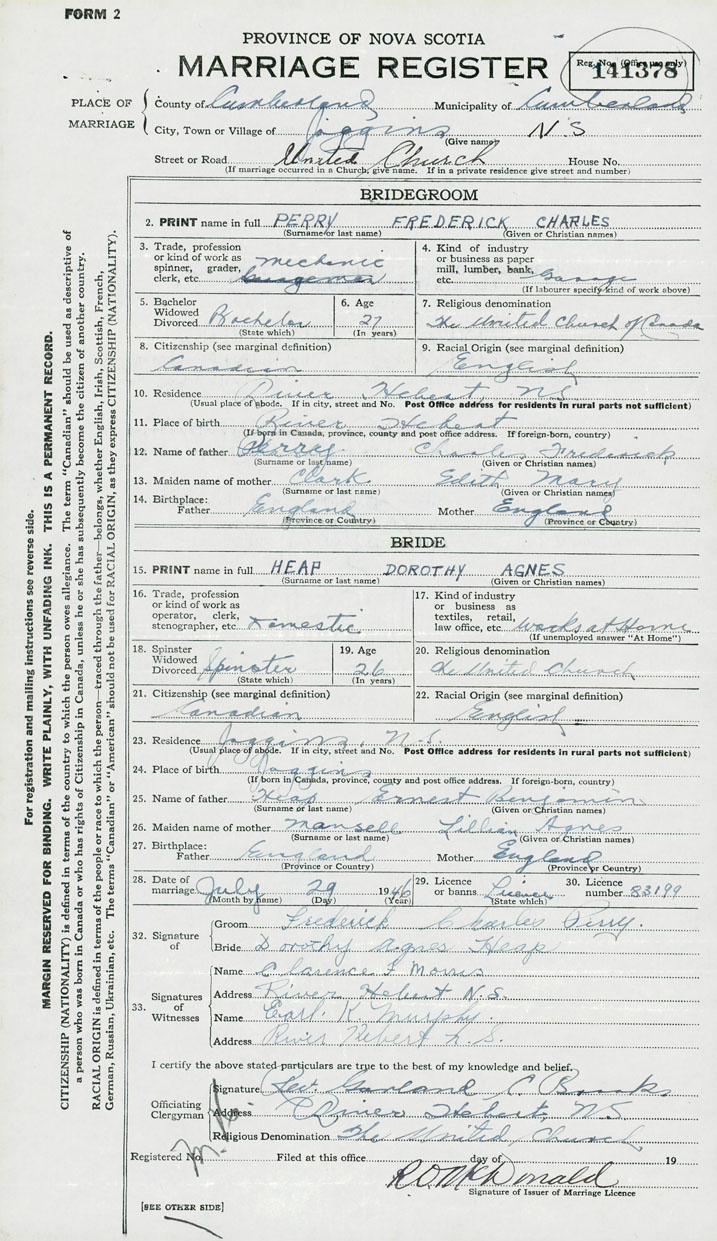 FORM 2
PROVINCE OF NOVA SCOTIA
MARRIAGE REGISTER
Reg. No. (Office use only)
141378
PLACE OF MARRIAGE
County of Cumberland Municipality of Cumberland
City, Town or Village of Joggins N S
(Give name)
Street or Road United Church House No.
(If marriage occurred in a Church, give name. If in a private residence give street and number)
BRIDEGROOM
2. PRINT name in full PERRY FREDERICK CHARLES
(Surname or last name) (Given or Christian names)
3. Trade, profession or kind of work as spinner, grader, clerk, etc. Mechanic
4. Kind of industry or business as paper mill, lumber, bank, etc. Garage
(If labourer specify kind of work above)
5. Bachelor Widowed Divorced Bachelor
(State which)
6. Age 27
(In years)
7. Religious denomination
The United Church of Canada
8. Citizenship (see marginal definition)
Canadian
9. Racial Origin (see marginal definition)
English
10. Residence River Hebert, N.S.
(Usual place of abode. If in city, street and No. Post Office address for residents in rural parts not sufficient)
11. Place of birth River Hebert
(If born in Canada, province, county and post office address. If foreign-born, country)
12. Name of father Perry Charles Frederick
(Surname or last name) (Given or Christian names)
13. Maiden name of mother Clark Edith Mary
(Surname or last name) (Given or Christian names)
14. Birthplace: Father England Mother England
(Province or Country) (Province or Country)
BRIDE
15. PRINT name in full HEAP DOROTHY AGNES
(Surname or last name) (Given or Christian names)
16. Trade, profession or kind of work as operator, clerk, stenographer, etc. Domestic
17. Kind of industry or business as textiles, retail, law office, etc. Works at Home
(If unemployed answer "At Home")
18. Spinster Widowed Divorced Spinster
(State which)
19. Age 26
(In years)
20. Religious denomination
The United Church
21. Citizenship (see marginal definition)
Canadian
22. Racial Origin (see marginal definition)
English
23. Residence Joggins, N.S.
(Usual place of abode. If in city, street and No. Post Office address for residents in rural parts not sufficient)
24. Place of birth Joggins
(If born in Canada, province, county and post office address. If foreign-born, country)
25. Name of father Heap Ernest Benjamin
(Surname or last name) (Given or Christian names)
26. Maiden name of mother Mansell Lillian Agnes
(Surname or last name) (Given or Christian names)
27. Birthplace: Father England Mother England
(Province or Country) (Province or Country)
28. Date of marriage July 29 1946
(Month by name) (Day) (Year)
29. Licence or banns License
(State which)
30. Licence number 83199
32. Signature of
Groom Frederick Charles Perry.
Bride Dorothy Agnes Heap
33. Signatures of Witnesses
Name Clarence F Morris
Address River Hebert N.S.
Name Earl K Murphy.
Address River Hebert N.S.
I certify the above stated particulars are true to the best of my knowledge and belief.
Officiating Clergyman
Signature Rev. Garland C. Brooks
Address River Hebert, N.S.
Religious Denomination The United Church
Registered No. Filed at this office day of 19
Signature of Issuer of Marriage Licence
[SEE OTHER SIDE]
For registration and mailing instructions see reverse side.
MARGIN RESERVED FOR BINDING. WRITE PLAINLY, WITH UNFADING INK. THIS IS A PERMANENT RECORD.
CITIZENSHIP (NATIONALITY) is defined in terms of the country to which the person owes allegiance. The term "Canadian" should be used as descriptive of
a person who was born in Canada or who has rights of Citizenship in Canada, unless he or she has subsequently become the citizen of another country.
RACIAL ORIGIN is defined in terms of the people or race to which the person—traced through the father—belongs, whether English, Irish, Scottish, French,
German, Russian, Ukrainian, etc. The terms "Canadian" or "American" should not be used for RACIAL ORIGIN, as they express CITIZENSHIP (NATIONALITY).